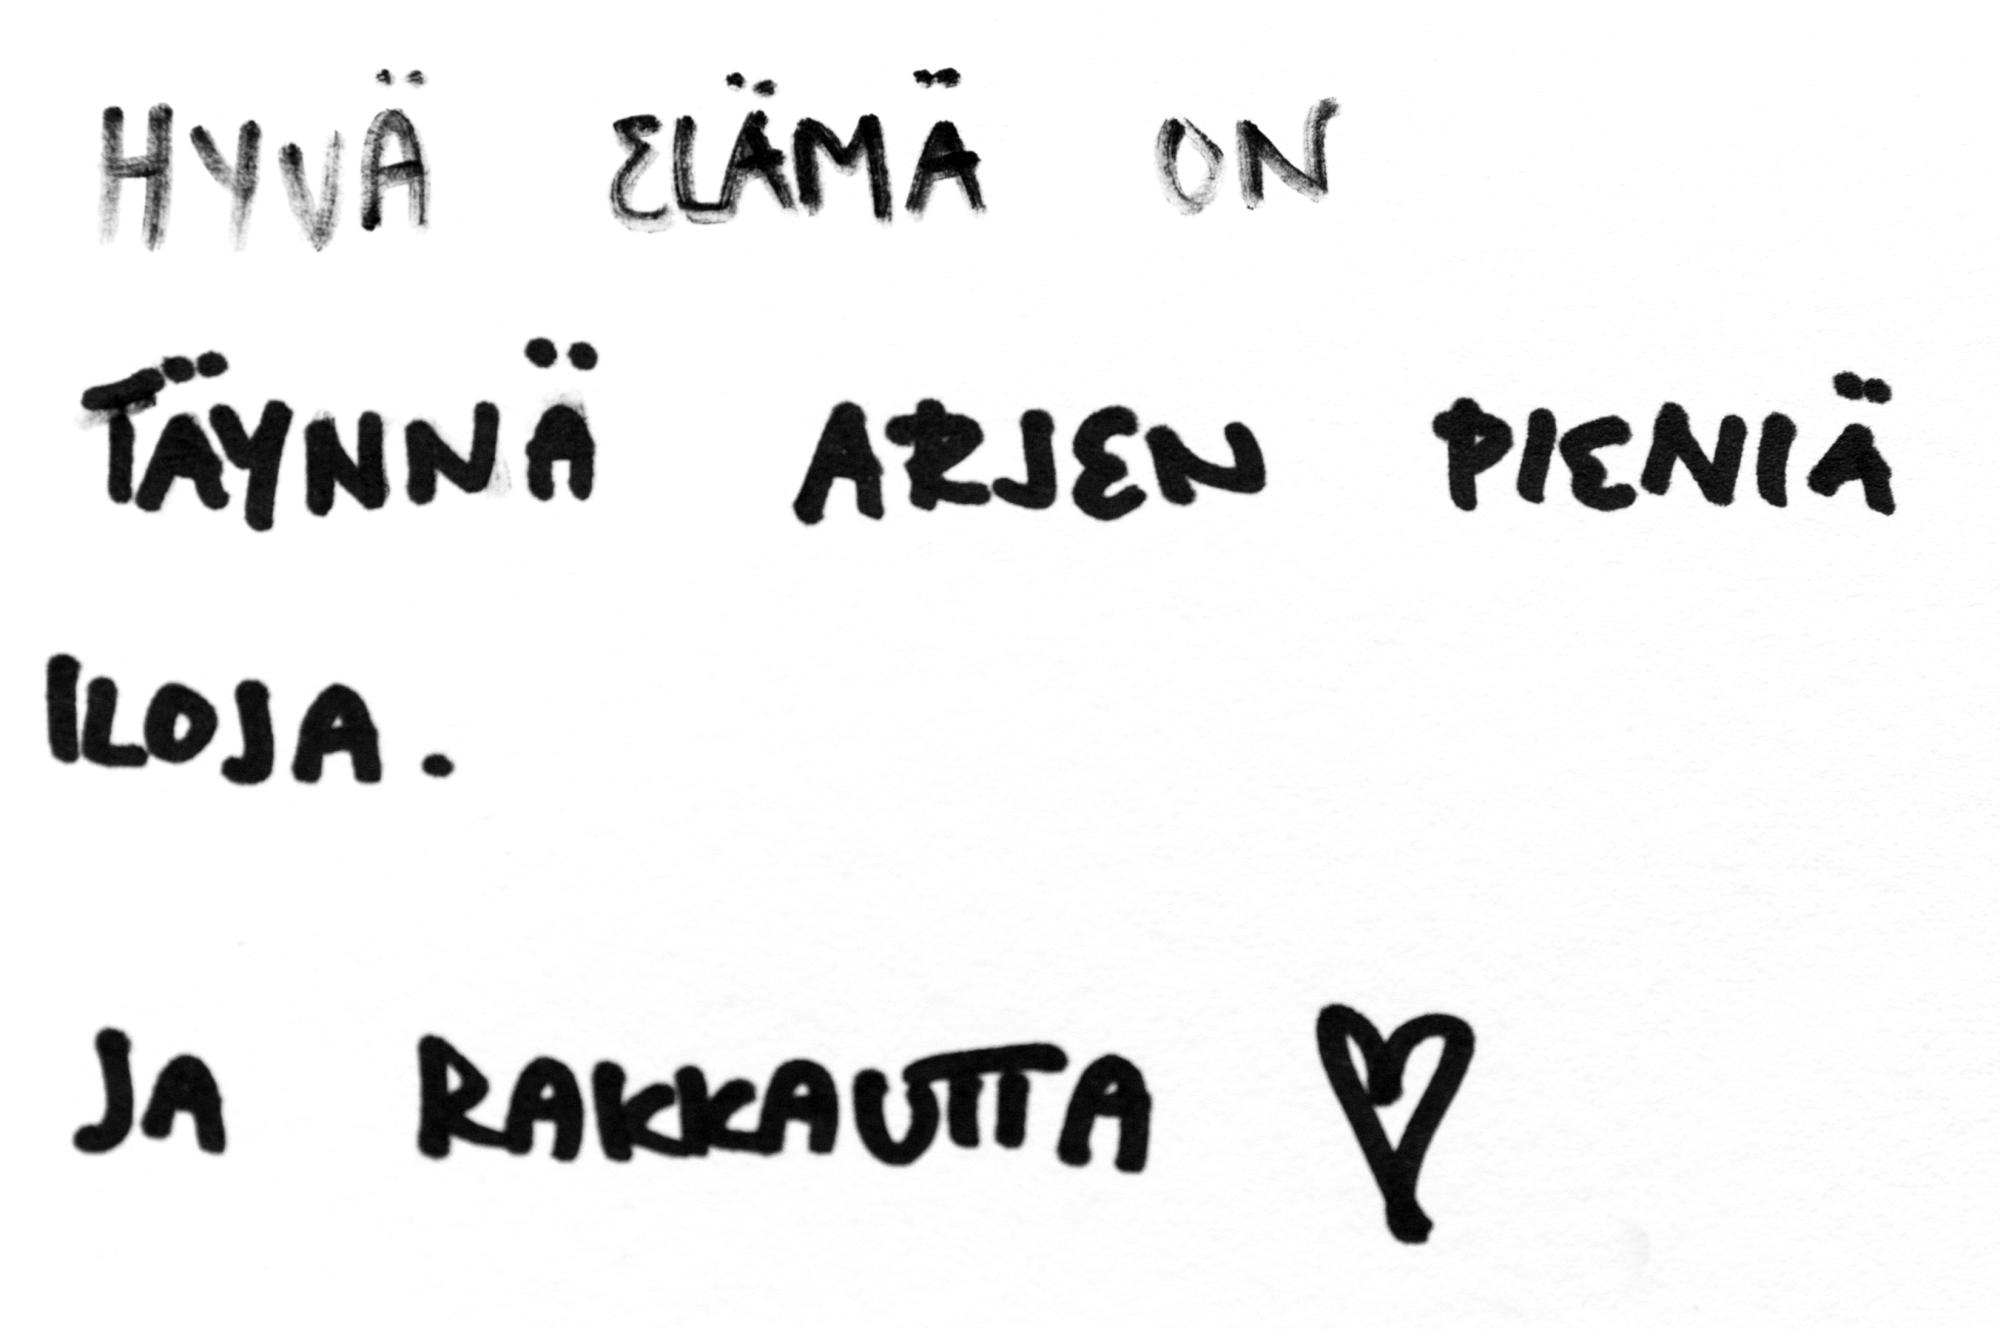 HYVÄ ELÄMÄ ON
TÄYNNÄ ARJEN PIENIÄ
ILOJA.
JA RAKKAUTTA ♡